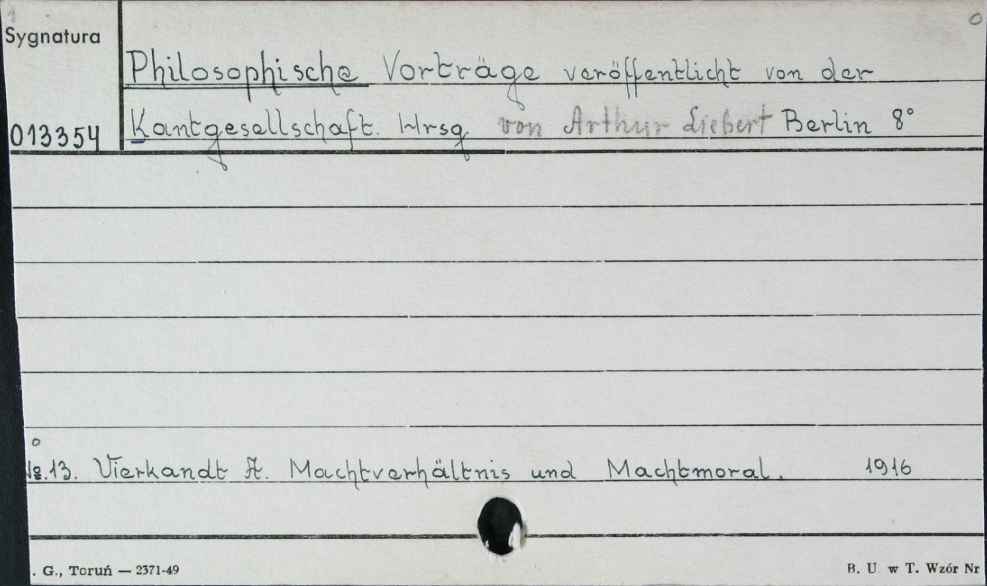 Sygnatura
Philosophische Vorträge veröffentlicht von der
013354 Kantgesellschaft. Hrsg von Arthur Liebert Berlin 8°
№.13. Vierkandt A. Machtverhältnis und Machtmoral. 1916
. G., Toruń — 2371-49 B. U w T. Wzór Nr